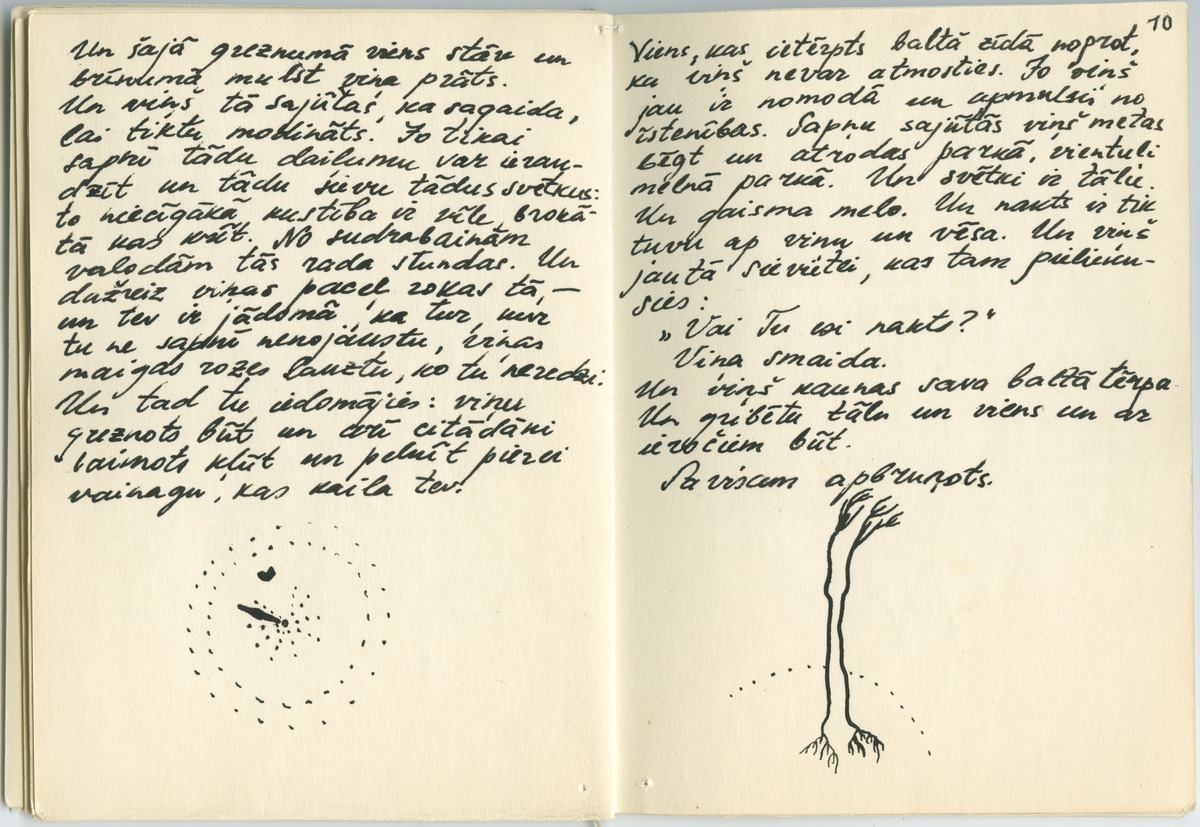 Un šajā greznumā viens stāv un
brīnumā mulst viņa prāts.
Un viņš tā sajūtas, ka sagaida,
lai tiktu modināts. Jo tikai
sapnī tādu dailumu var ierau-
dzīt un tādu sievu tādus svētkus:
to niecīgākā kustība ir vīle, brokā
tā kas krīt. No sudrabainām
valodām tās rada stundas. Un
dažreiz viņas paceļ rokas tā, —
un tev ir jādomā, ka tur, kur
tu ne sapnī nenojaustu, viņas
maigas rozes lauztu, ko tu neredzi.
Un tad tu iedomājies: viņu
greznots būt un citādāki
laimots kļūt un pelnīt pierei
vainagu, kas kaila tev.
10
Viens, kas ietērpts baltā zīdā noprot,
ka viņš nevar atmosties. Jo viņš
jau ir nomodā un apmulsis no
īstenības. Sapņu sajūtās viņš metas
bēgt un atrodas parkā, vientuļi
melnā parkā. Un svētki ir tālu.
Un gaisma melo. Un nakts ir tik
tuvu ap viņu un vēsa. Un viņš
jautā sievietei, kas tam pieliecu-
sies:
„Vai Tu esi nakts?"
Viņa smaida.
Un viņš kaunas sava baltā tērpa
Un gribētu tālu un viens un ar
ieročiem būt.
Pavisam apbruņots.